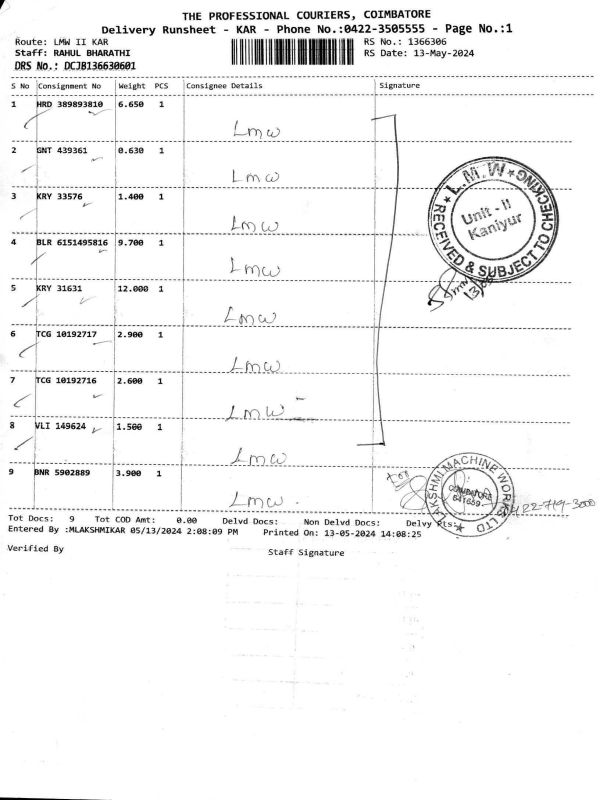 THE PROFESSIONAL COURIERS, COIMBATORE
Delivery Runsheet - KAR - Phone No.:0422-3505555 - Page No.:1
Route: LMW II KAR
RS No.: 1366306
Staff: RAHUL BHARATHI
RS Date: 13-May-2024
DRS No.: DCJB136630601
S No Consignment No Weight PCS Consignee Details Signature
1 HRD 389893810 6.650 1
Lmw
2 GNT 439361 0.630 1
Lmw
3 KRY 33576 1.400 1
Lmw
4 BLR 6151495816 9.700 1
Lmw
5 KRY 31631 12.000 1
Lmw
6 TCG 10192717 2.900 1
Lmw
7 TCG 10192716 2.600 1
Lmw
8 VLI 149624 1.500 1
Lmw
9 BNR 5902889 3.900 1
Lmw .
L.M.W. ★ ONNING ★ RECEIVED & SUBJECT TO CHECKING
Unit - II
Kaniyur
LAKSHMI MACHINE WORKS LTD ★
COIMBATORE
Tot Docs: 9 Tot COD Amt: 0.00 Delvd Docs: Non Delvd Docs: Delvy Pts:
Entered By :MLAKSHMIKAR 05/13/2024 2:08:09 PM Printed On: 13-05-2024 14:08:25
Verified By
Staff Signature